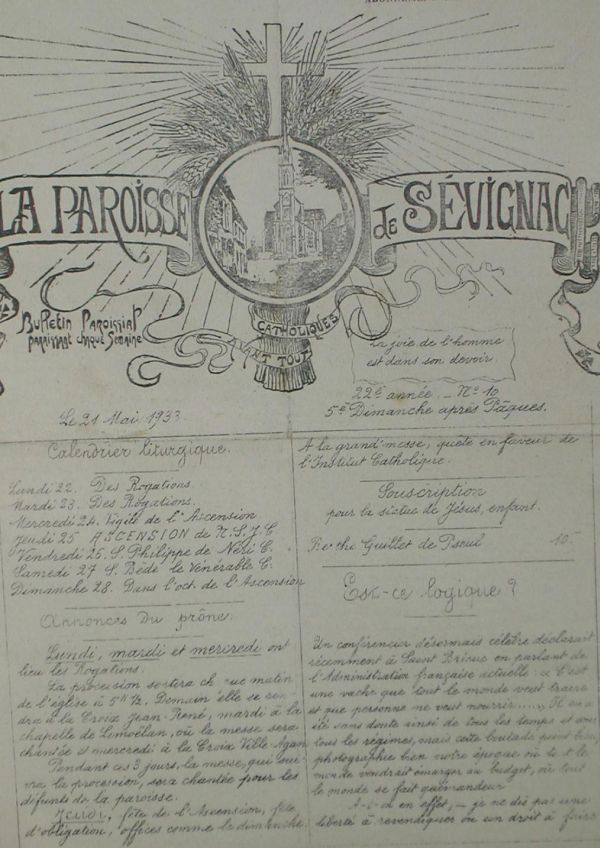 LA PAROISSE
de SÉVIGNAC
Bulletin Paroissial
paraissant chaque Semaine
CATHOLIQUES
AVANT TOUT
La joie de l'homme
est dans son devoir.
22e année. _ No 10
5e Dimanche après Pâques.
Le 21 Mai 1933.
Calendrier liturgique.
Lundi 22. Des Rogations.
Mardi 23. Des Rogations.
Mercredi 24. Vigile de l'Ascension.
Jeudi 25 ASCENSION de N.S.J.C
Vendredi 26. S. Philippe de Néri C.
Samedi 27 S. Bède le Vénérable C.
Dimanche 28. Dans l'oct. de l'Ascension
Annonces du prône.
Lundi, mardi et mercredi ont
lieu les Rogations.
La procession sortira matin
de l'église à 5h 1/2. Demain elle se ren-
dra à la Croix Jean-René, mardi à la
chapelle de Limoëlan, où la messe sera
chantée et mercredi à la Croix
Pendant ces 3 jours, la messe, qui sui-
vra la procession, sera chantée pour les
défunts de la paroisse.
Jeudi, fête de l'Ascension, fête
d'obligation, offices comme le dimanche.
A la grand'messe, quête en faveur de
l'Institut Catholique.
Souscription
pour la statue de Jésus, enfant.
Guillet de 10.-
Est-ce logique ?
Un conférencier désormais célèbre déclarait
récemment à Saint Brieuc en parlant de
l'Administration française actuelle : « C'est
une vache que tout le monde veut traire
et que personne ne veut nourrir..... Il en a
été sans doute ainsi de tous les temps et sous
tous les régimes, mais cette boutade peint bien
photographie bien notre époque où tout le
monde voudrait émarger au budget, où tout
le monde se fait quémandeur.
A-t-on en effet, _ je ne dis pas une
liberté à revendiquer ou un droit à faire